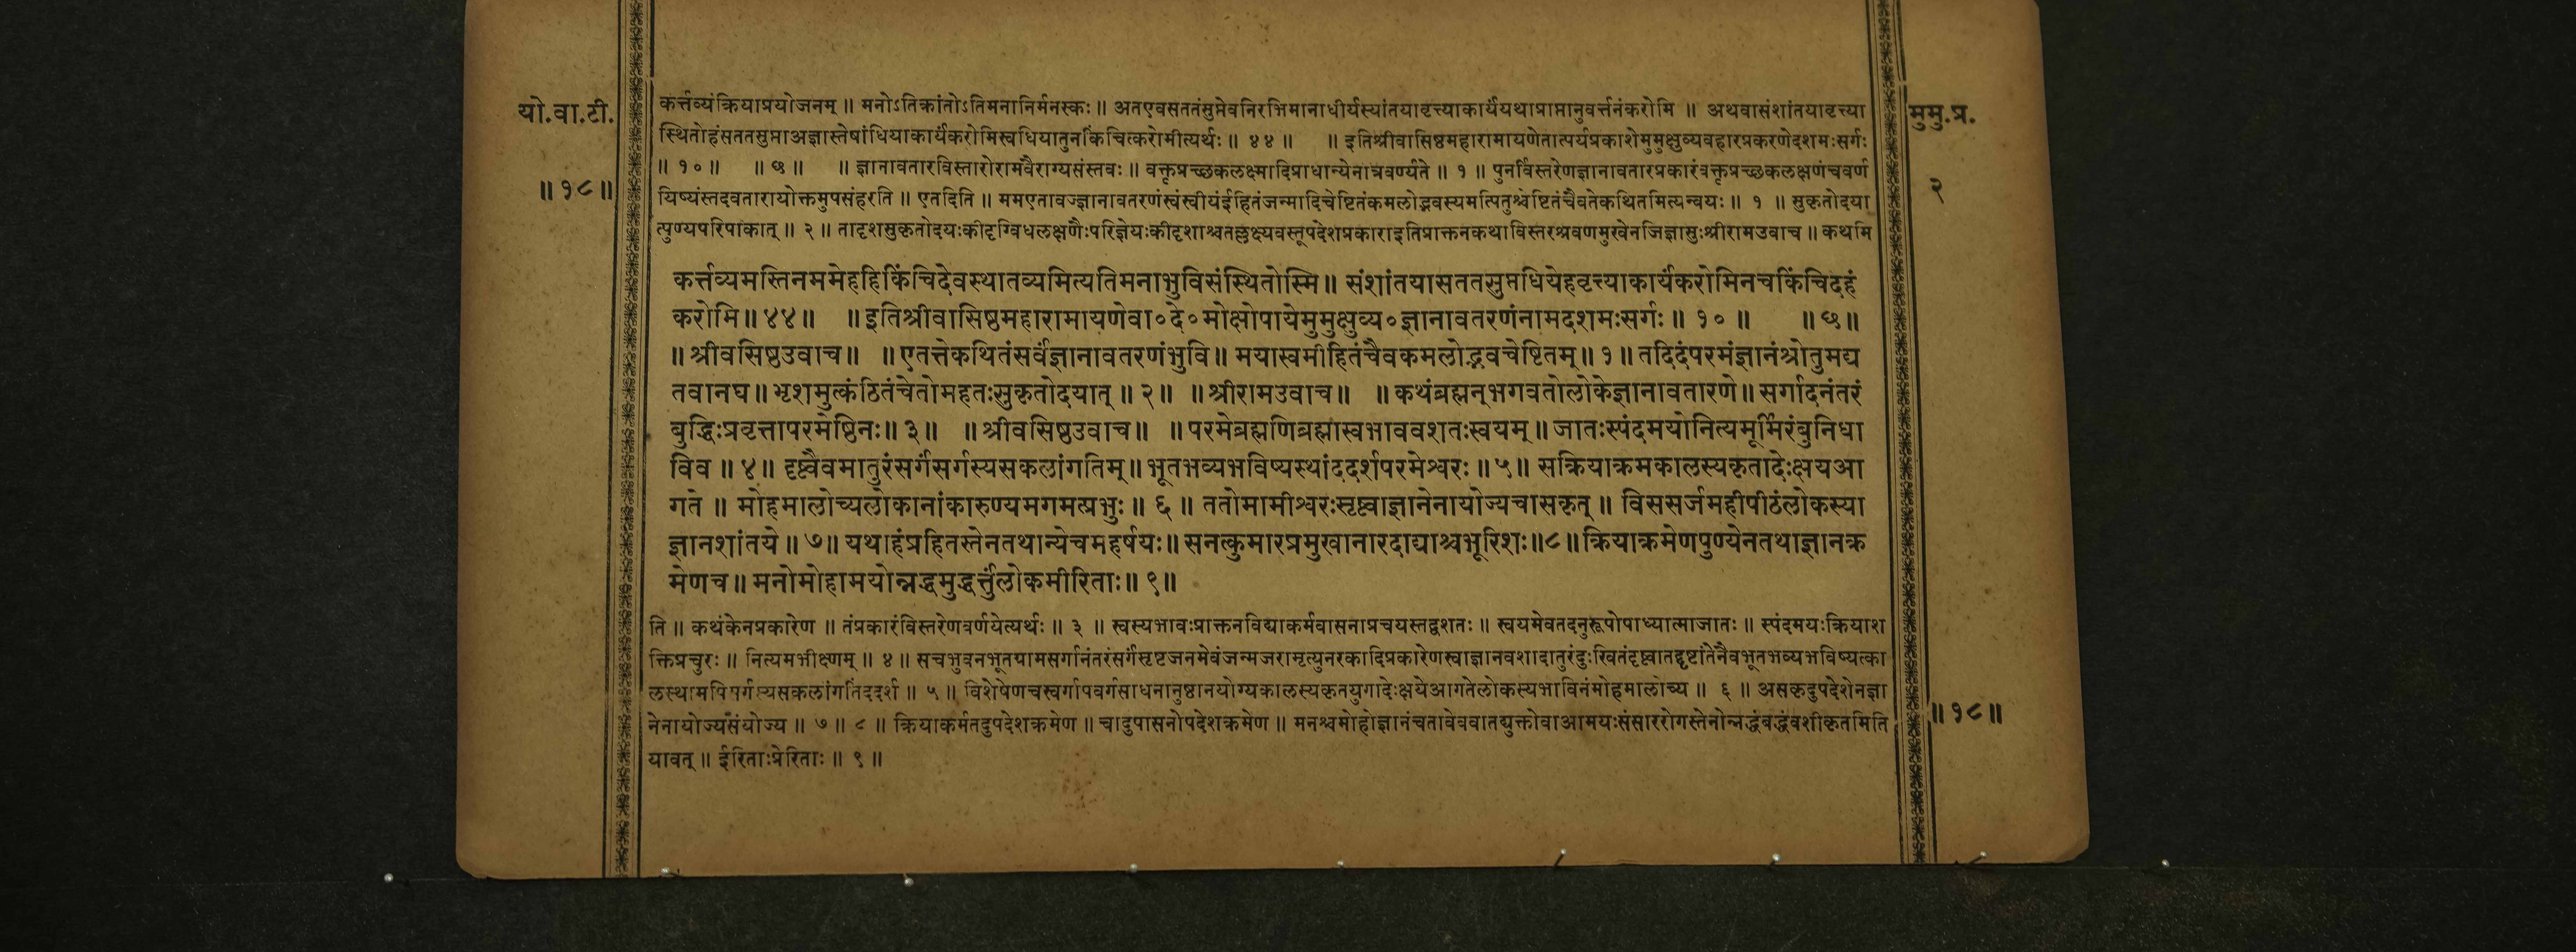 यो.वा.टी.
॥१८॥
मुमु.प्र.
२
कर्त्तव्यंक्रियाप्रयोजनम् ॥ मनोऽतिक्रांतोऽतिमनानिर्मनस्कः ॥ अतएवसततंसुप्तेवनिरभिमानाधीर्यस्यांतयावृत्त्याकार्यंयथाप्राप्तानुवर्त्तनंकरोमि ॥ अथवासंशांतयावृत्त्या
स्थितोहंसततसुप्ताअज्ञास्तेषांधियाकार्यंकरोमिस्वधियातुनकिंचित्करोमीत्यर्थः ॥ ४४ ॥ ॥ इतिश्रीवासिष्ठमहारामायणेतात्पर्यप्रकाशेमुमुक्षुव्यवहारप्रकरणेदशमःसर्गः
॥ १० ॥ ॥ छ ॥ ॥ ज्ञानावतारविस्तारोरामवैराग्यसंस्तवः ॥ वक्तृप्रच्छकलक्ष्मादिप्राधान्येनात्रवर्ण्यते ॥ १ ॥ पुनर्विस्तरेणज्ञानावतारप्रकारंवक्तृप्रच्छकलक्षणंचवर्ण
यिष्यंस्तदवतारायोक्तमुपसंहरति ॥ एतदिति ॥ ममएतावज्ज्ञानावतरणंस्वंस्वीयंईहितंजन्मादिचेष्टितंकमलोद्भवस्यमत्पितुश्चेष्टितंचैवतेकथितमित्यन्वयः ॥ १ ॥ सुकृतोदया
त्पुण्यपरिपाकात् ॥ २ ॥ तादृशसुकृतोदयःकीदृग्विधलक्षणैःपरिज्ञेयःकीदृशाश्चतल्लक्ष्यवस्तूपदेशप्रकाराइतिप्राक्तनकथाविस्तरश्रवणमुखेनजिज्ञासुःश्रीरामउवाच ॥ कथमि
कर्त्तव्यमस्तिनममेहहिकिंचिदेवस्थातव्यमित्यतिमनाभुविसंस्थितोस्मि ॥ संशांतयासततसुप्तधियेहवृत्त्याकार्यंकरोमिनचकिंचिदहं
करोमि ॥ ४४ ॥ ॥ इतिश्रीवासिष्ठमहारामायणेवा॰दे॰मोक्षोपायेमुमुक्षुव्य॰ज्ञानावतरणंनामदशमःसर्गः ॥ १० ॥ ॥ छ ॥
॥ श्रीवसिष्ठउवाच ॥ ॥ एतत्तेकथितंसर्वंज्ञानावतरणंभुवि ॥ मयास्वमीहितंचैवकमलोद्भवचेष्टितम् ॥ १ ॥ तदिदंपरमंज्ञानंश्रोतुमद्य
तवानघ ॥ भृशमुत्कंठितंचेतोमहतःसुकृतोदयात् ॥ २ ॥ ॥ श्रीरामउवाच ॥ ॥ कथंब्रह्मन्भगवतोलोकेज्ञानावतारणे ॥ सर्गादनंतरं
बुद्धिःप्रवृत्तापरमेष्ठिनः ॥ ३ ॥ ॥ श्रीवसिष्ठउवाच ॥ ॥ परमेब्रह्मणिब्रह्मास्वभाववशतःस्वयम् ॥ जातःस्पंदमयोनित्यमूर्मिरंबुनिधा
विव ॥ ४ ॥ दृष्ट्वैवमातुरंसर्गंसर्गस्यसकलांगतिम् ॥ भूतभव्यभविष्यस्थांददर्शपरमेश्वरः ॥ ५ ॥ सक्रियाक्रमकालस्यकृतादेःक्षयआ
गते ॥ मोहमालोच्यलोकानांकारुण्यमगमत्प्रभुः ॥ ६ ॥ ततोमामीश्वरःसृष्ट्वाज्ञानेनायोज्यचासकृत् ॥ विससर्जमहीपीठंलोकस्या
ज्ञानशांतये ॥ ७ ॥ यथाहंप्रहितस्तेनतथान्येचमहर्षयः ॥ सनत्कुमारप्रमुखानारदाद्याश्चभूरिशः ॥ ८ ॥ क्रियाक्रमेणपुण्येनतथाज्ञानक्र
मेणच ॥ मनोमोहामयोन्नद्धमुद्धर्त्तुंलोकमीरिताः ॥ ९ ॥
ति ॥ कथंकेनप्रकारेण ॥ तंप्रकारंविस्तरेणवर्णयेत्यर्थः ॥ ३ ॥ स्वस्यभावःप्राक्तनविद्याकर्मवासनाप्रचयस्तद्वशतः ॥ स्वयमेवतदनुरूपोपाध्यात्माजातः ॥ स्पंदमयःक्रियाश
क्तिप्रचुरः ॥ नित्यमभीक्ष्णम् ॥ ४ ॥ सचभुवनभूतग्रामसर्गानंतरंसर्गंसृष्टजनमेवंजन्मजरामृत्युनरकादिप्रकारेणस्वाज्ञानवशादातुरंदुःखितंदृष्ट्वातद्दृष्टांतेनैवभूतभव्यभविष्यत्का
लस्थामपिसर्गस्यसकलांगतिंददर्श ॥ ५ ॥ विशेषेणचस्वर्गापवर्गसाधनानुष्ठानयोग्यकालस्यकृतयुगादेःक्षयेआगतेलोकस्यभाविनंमोहमालोच्य ॥ ६ ॥ असकृदुपदेशेनज्ञा
नेनायोज्यसंयोज्य ॥ ७ ॥ ८ ॥ क्रियाकर्मतदुपदेशक्रमेण ॥ चादुपासनोपदेशक्रमेण ॥ मनश्चमोहोज्ञानंचतावेववातद्युक्तोवाआमयःसंसाररोगस्तेनोन्नद्धंबद्धंवशीकृतमिति
यावत् ॥ ईरिताःप्रेरिताः ॥ ९ ॥
॥१८॥